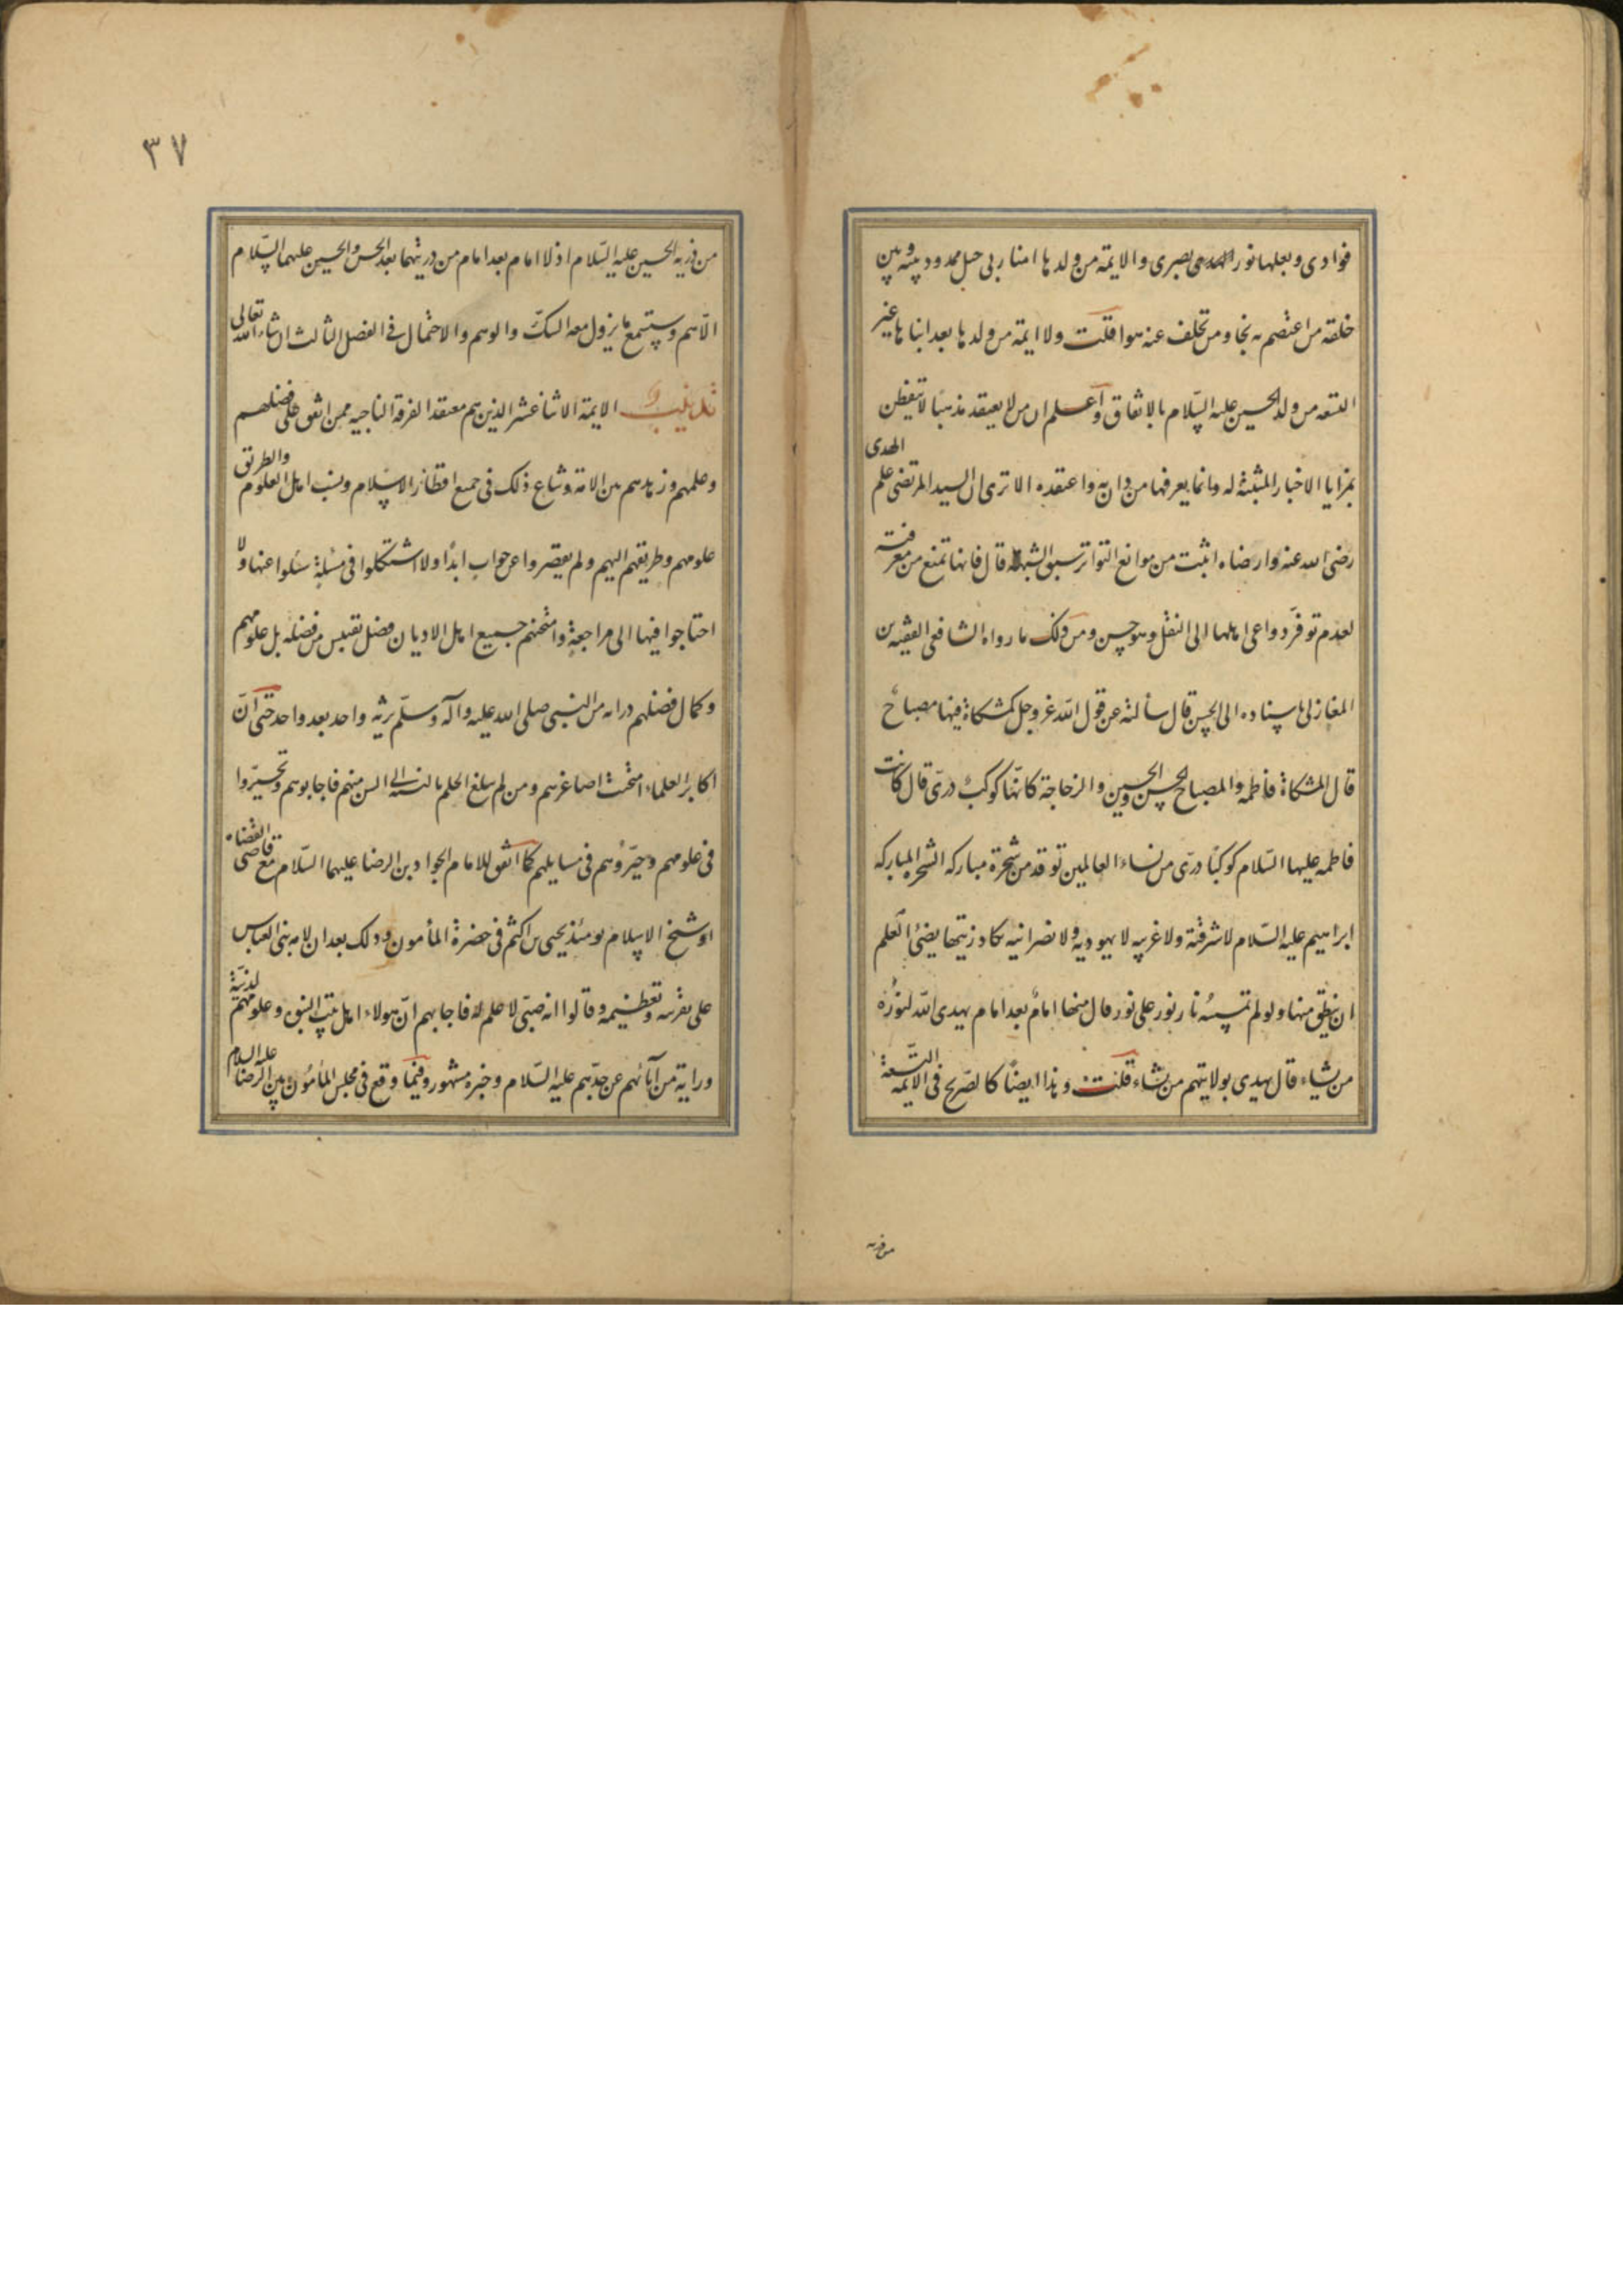 فوادى وبعلها نور بصرى والايمة من ولدها امنا ربى حبل ممدود بينه وبين
خلقه من اعتصم به نجا ومن تخلف عنه هوا قلت ولا ايمة من ولدها بعد ابناها غير
التسعه من ولد الحسين عليه السّلام بالاتفاق واعلم ان من لا يعتقد مذهبًا لا يتفطن
بمزايا الاخبار المثبتة له وانما يعرفها من دان به واعتقده الا ترى ان السيد المرتضى علم الهدى
رضى الله عنه وارضاه اثبت من موانع التواتر سبق الشبهة قال فانها تمنع من معرفته
لعدم توفّر دواعى اهلها الى النقل وهو حسن ومن ذلك ما رواه الشافعى الفقيه بن
المغازلى باسناده الى الحسن قال سألته عن قول الله عز وجل كمشكاة فيها مصباح
قال المشكاة فاطمه والمصباح الحسن والحسين والزجاجة كانّها كوكبٌ درىّ قال كانت
فاطمه عليها السّلام كوكبًا درّى من نساء العالمين توقد من شجرة مباركه الشجره المباركه
ابراهيم عليه السّلام لا شرقية ولا غربيه لا يهوديه ولا نصرانيه يكاد زيتها يضئ العلم
ان ينطق منها ولو لم تمسسه نار نور على نور قال منها امامٌ بعد امام يهدى الله لنوره
من يشاء قال يهدى بولايتهم من يشاء قلت وهذا ايضًا كالصّريح فى الايمه التّسعة
من ذريه
٣٧
من ذريه الحسين عليه السّلام اذ لا امام بعد امام من ذريتهما بعد الحسن والحسين عليهما السّلام
الّا هم وستسمع ما يزول معه الشكّ والوهم والاحتمال فى الفصل الثالث ان شاء الله تعالى
تذنيب الايمة الاثنا عشر الذين هم معتقد الفرقة الناجيه ممن اتفق على فضلهم
وعلمهم وزهدهم بين الامة وشاع ذلك فى جميع اقطار الاسلام ونسب اهل العلوم والطريق
علومهم وطريقهم اليهم ولم يقصروا عن جواب ابدًا ولا استشكلوا فى مسئلة سئلوا عنها ولا
احتاجوا فيها الى مراجعة وامتحنهم جميع اهل الاديان فضل يقتبس من فضله بل علومهم
وكمال فضلهم من النبى صلى الله عليه وآله وسلّم يرثه واحد بعد واحد حتى انّ
اكابر العلماء امتحنت اصاغرهم ومن لم يبلغ الحلم بالنسبة الى السن منهم فاجابوهم وتحيّروا
فى علومهم وحيّروهم فى مسايلهم كما اتفق للامام الجواد بن الرضا عليهما السّلام مع قاضى القضاه
او شيخ الاسلام يومئذ يحيى بن اكثم فى حضرة المأمون وذلك بعد ان لامه بنى العباس
على تقربه وتعظيمه وقالوا انه صبّى لا علم له فاجابهم انّ هولاء اهل بيت النبى وعلومهم لدنّيّة
وراثة من آبائهم عن جدّهم عليه السّلام وخبره مشهور وفيما وقع فى مجلس المأمون بين الرضا عليه السلام